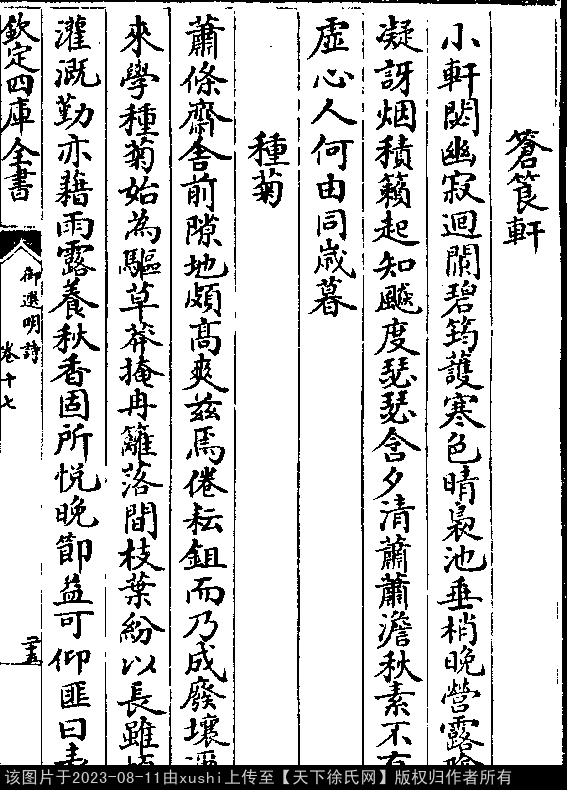 蒼筤軒
小軒閟幽寂迴闌碧筠護寒色晴裊池垂梢晚營露
凝訝烟積籟起知飈度瑟瑟含夕清蕭蕭澹秋素不有
虛心人何由同嵗暮
種菊
蕭條齋舎前隙地頗髙爽兹焉倦耘鉏而乃成廢壤
來學種菊始為驅草莽掩冉籬落間枝葉紛以長雖
灌溉勤亦藉雨露養秋香固所悦晚節益可仰匪曰
欽定四庫全書
御選明詩
卷十七
二十五
该图片于2023-08-11由xushi上传至【天下徐氏网】版权归作者所有